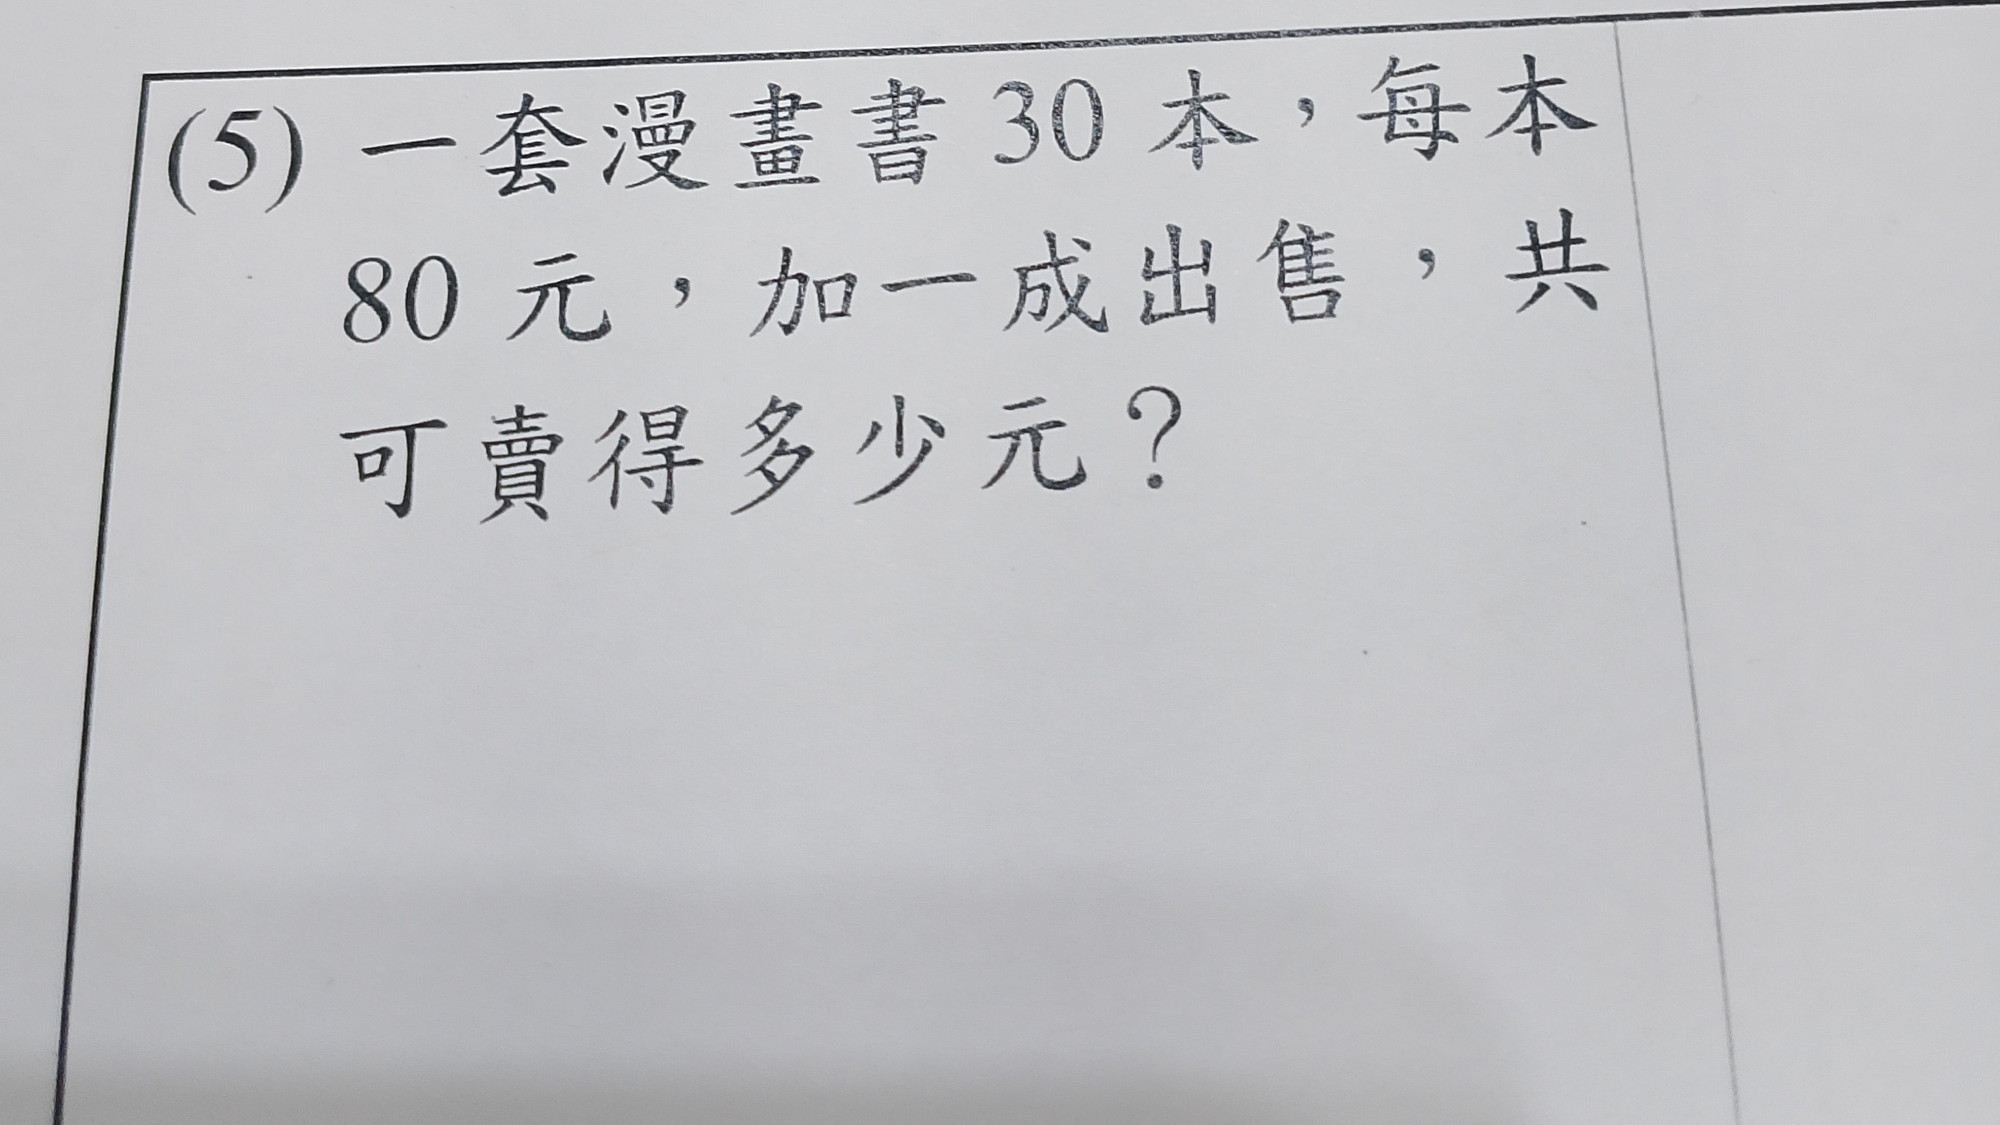 (5) 一套漫畫書 30 本，每本
80 元，加一成出售，共
可賣得多少元？